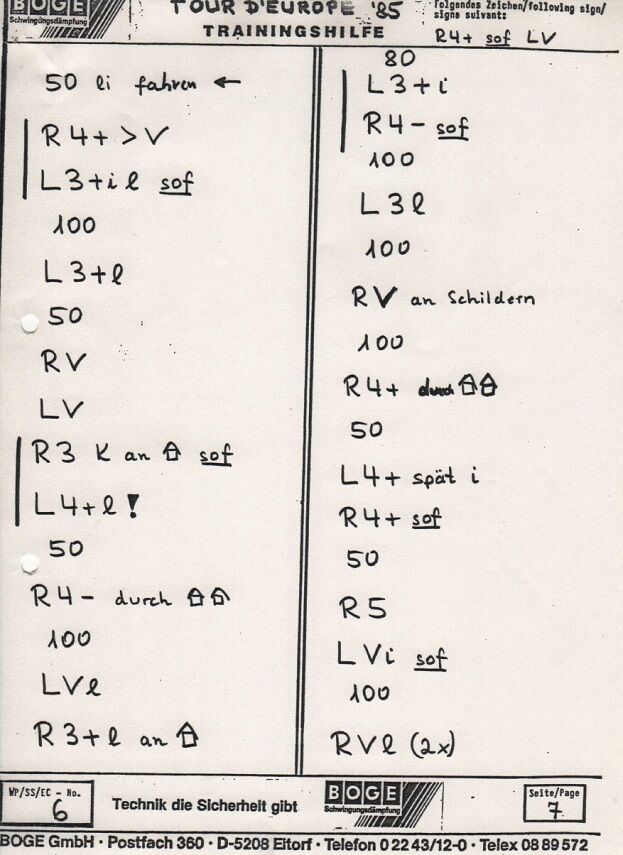 BOGE
Schwingungsdämpfung
TOUR D'EUROPE '85
TRAININGSHILFE
folgendes Zeichen/following sign/
signe suivant:
R4+ sof LV
50 li fahren ←
R4+ > V
L3+i l sof
100
L3+l
50
RV
LV
R3 K an ⌂ sof
L4+l!
50
R4- durch ⌂⌂
100
LVl
R3+l an ⌂
80
L3+i
R4- sof
100
L3l
100
RV an Schildern
100
R4+ durch ⌂⌂
50
L4+ spät i
R4+ sof
50
R5
LVi sof
100
RVl (2x)
WP/SS/EC - No.
6
Technik die Sicherheit gibt
BOGE
Schwingungsdämpfung
Seite/Page
7
BOGE GmbH · Postfach 360 · D-5208 Eitorf · Telefon 0 22 43/12-0 · Telex 08 89 572